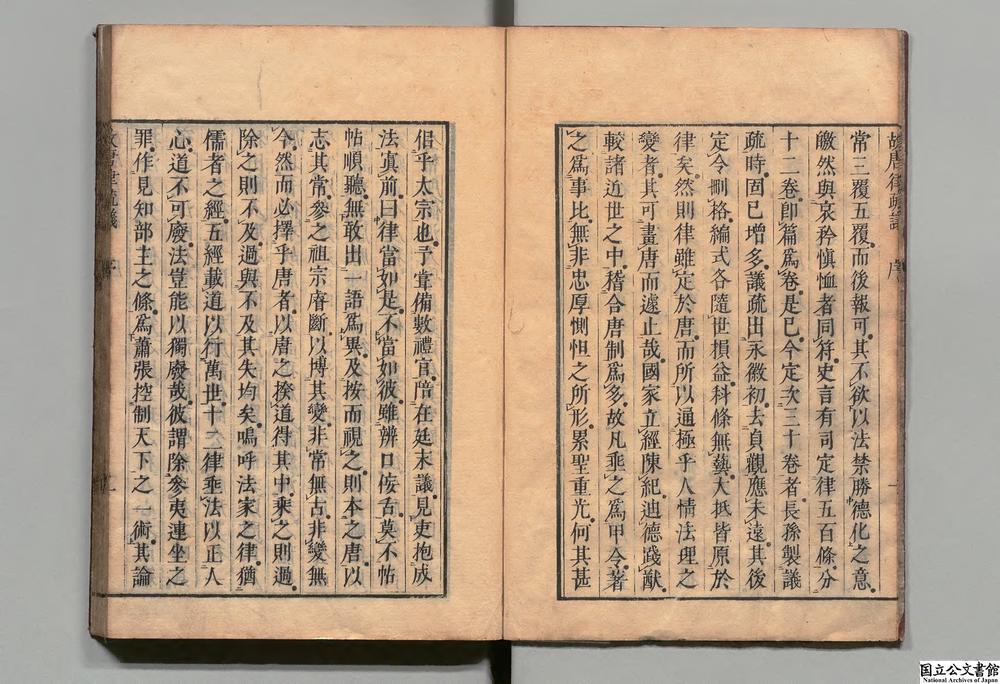 常三覆五覆而後報可其不欲以法禁勝德化之意
皦然與哀矜愼恤者同符史言有司定律五百條分
十二卷卽篇爲卷是已今定次三十卷者長孫製議
疏時固已增多議疏出永徽初去貞觀應未遠其後
定令刪格編式各隨世損益科條無藝大抵皆原於
律矣然則律雖定於唐而所以通極乎人情法理之
變者其可畫唐而遽止哉國家立經陳紀迪德踐猷
較諸近世之中稽合唐制爲多故凡乖之爲甲令著
之爲事比無非忠厚惻怛之所形累聖重光何其甚
侣乎太宗也予甞備數禮官陪在廷末議見吏抱成
法寘前曰律當如是不當如彼雖辨口佞舌莫不帖
帖頓聽無敢出一語爲異及按而視之則本之唐以
志其常參之祖宗睿斷以博其變非常無古非變無
今然而必擇乎唐者以唐之揆道得其中乘之則過
除之則不及過與不及其失均矣嗚呼法家之律猶
儒者之經五經載道以行萬世十二律乖法以正人
心道不可廢法豈能以獨廢哉彼謂除參夷連坐之
罪作見知部主之條爲蕭張控制天下之一術其論
故唐律疏議 序
国立公文書館
National Archives of Japan